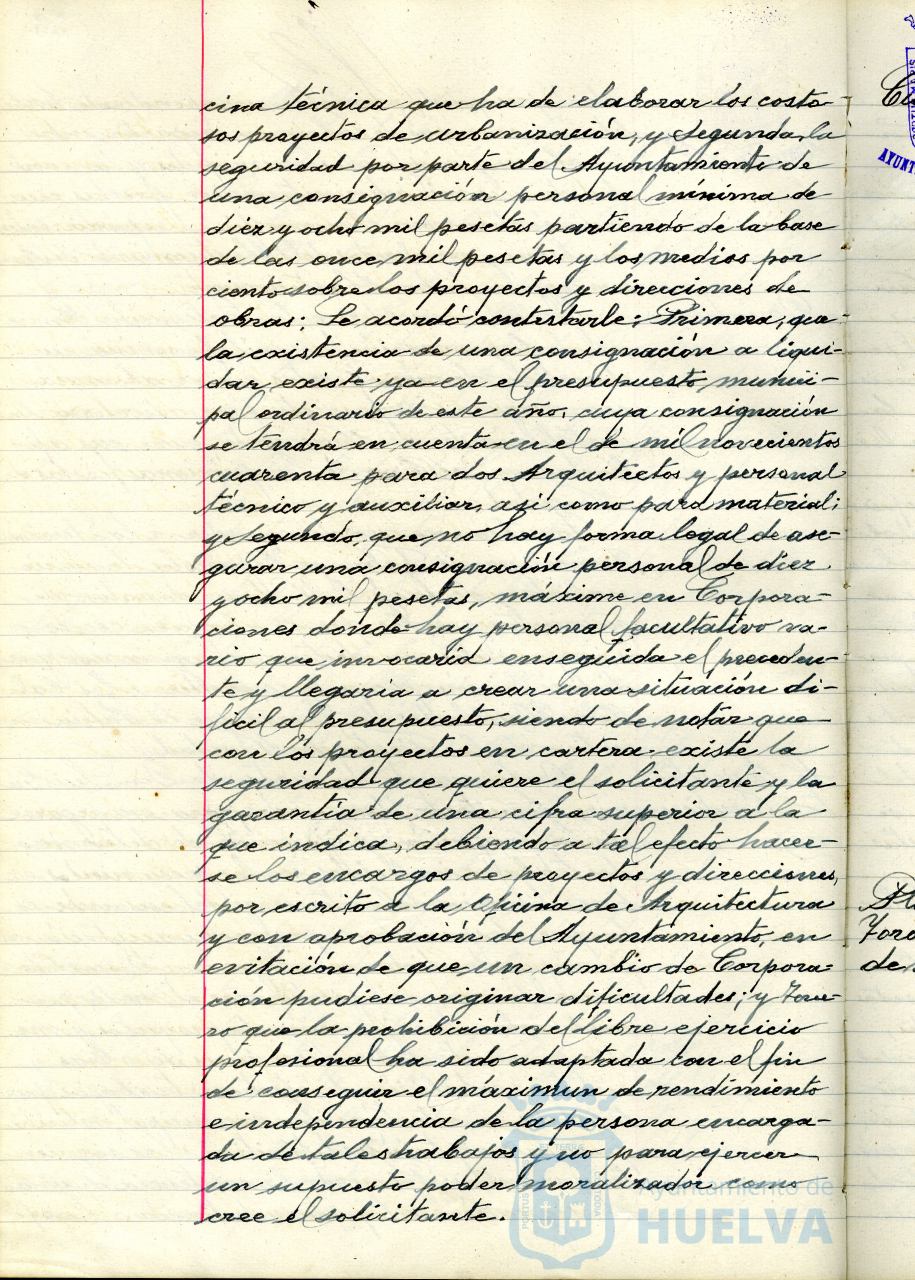 cina técnica que ha de elaborar los costo-
sos proyectos de urbanización; y Segunda, la
seguridad por parte del Ayuntamiento de
una consignación personal mínima de
diez y ocho mil pesetas partiendo de la base
de las once mil pesetas y los medios por
ciento sobre los proyectos y direcciones de
obras; Se acordó contestarle: Primera, que
la existencia de una consignación a liqui-
dar existe ya en el presupuesto munici-
pal ordinario de este año, cuya consignación
se tendrá en cuenta en el de mil novecientos
cuarenta para dos Arquitectos y personal
técnico y auxiliar, asi como para material;
y Segundo, que no hay forma legal de ase-
gurar una consignación personal de diez
y ocho mil pesetas, máxime en Corpora-
ciones donde hay personal facultativo va-
rio que invocaría enseguida el preceden-
te y llegaría a crear una situación di-
ficil al presupuesto, siendo de notar que
con los proyectos en cartera existe la
seguridad que quiere el solicitante y la
garantía de una cifra superior a la
que indica, debiendo a tal efecto hacer-
se los encargos de proyectos y direcciones,
por escrito a la Oficina de Arquitectura
y con aprobación del Ayuntamiento, en
evitación de que un cambio de Corpora-
ción pudiese originar dificultades; y Terce-
ro que la prohibición del libre ejercicio
profesional ha sido adaptada con el fin
de conseguir el máximun de rendimiento
e independencia de la persona encarga-
da de tales trabajos y no para ejercer
un supuesto poder moralizador como
cree el solicitante.
Ayuntamiento de
HUELVA